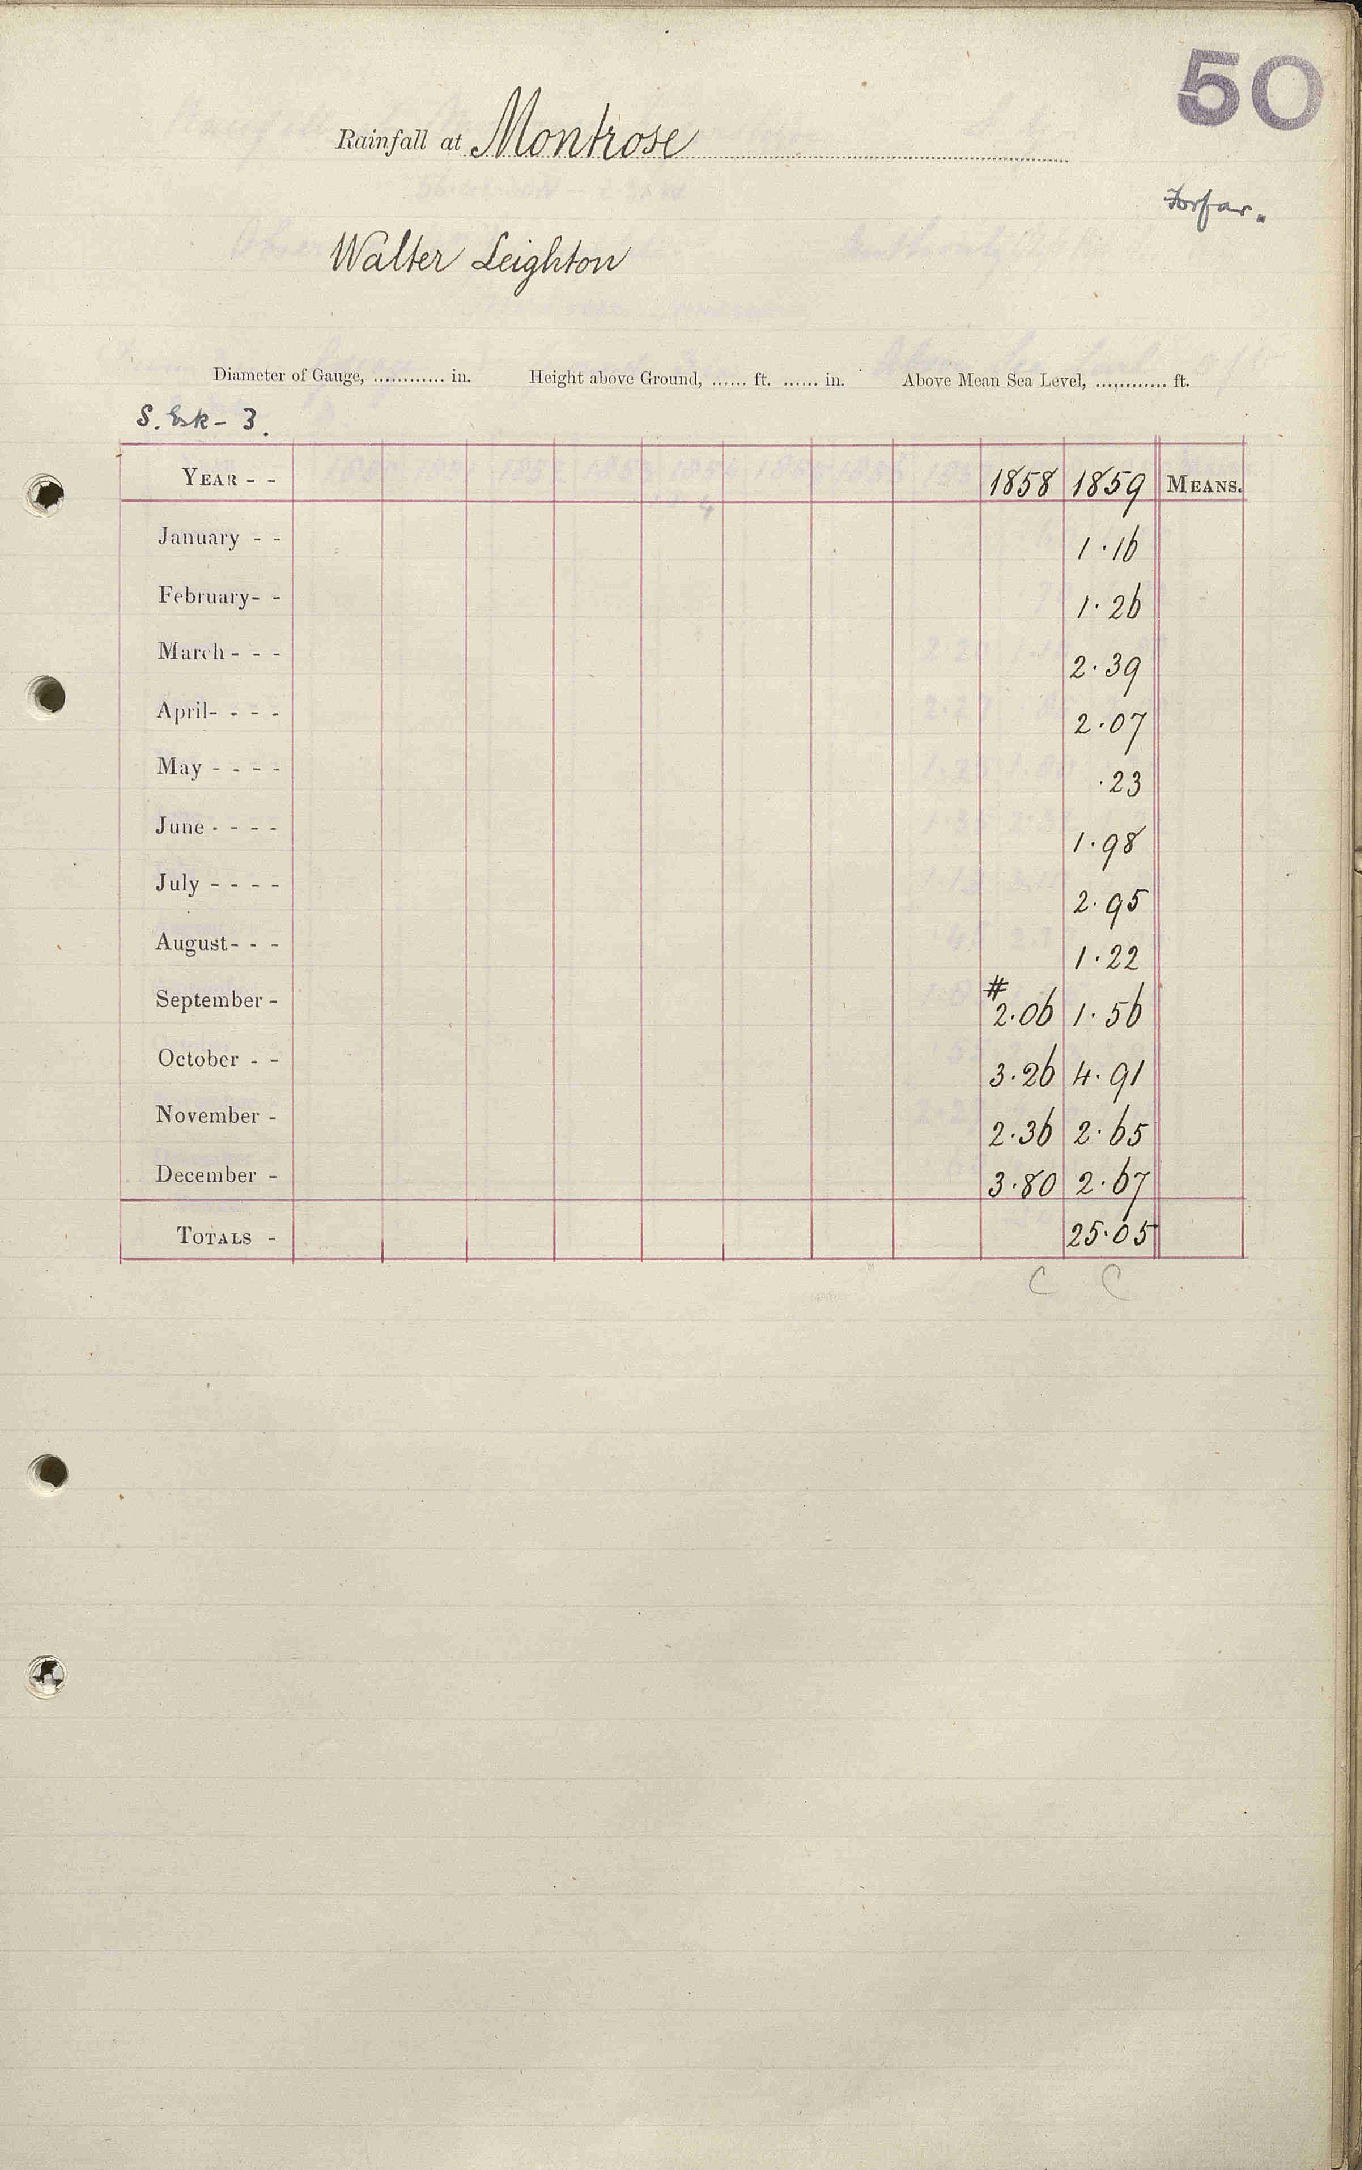 50
Rainfall at Montrose
Forfar.
Walter Leighton
Diameter of Gauge, ............ in. Height above Ground, ...... ft. ...... in. Above Mean Sea Level, ............ ft.
S. Esk - 3.
YEAR - - 1858 1859 MEANS.
January - - 1.16
February - - 1.26
March - - - 2.39
April - - - - 2.07
May - - - - .23
June - - - - 1.98
July - - - - 2.95
August - - - 1.22
September - # 2.06 1.56
October - - 3.26 4.91
November - 2.36 2.65
December - 3.80 2.67
TOTALS - 25.05
C C